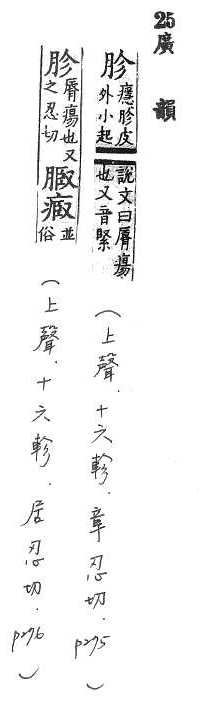 25廣韻
胗癮胗皮外小起說文曰脣瘍也又音緊（上聲．十六軫．章忍切．p275）
胗脣瘍也又之忍切 並俗（上聲．十六軫．居忍切．p276）